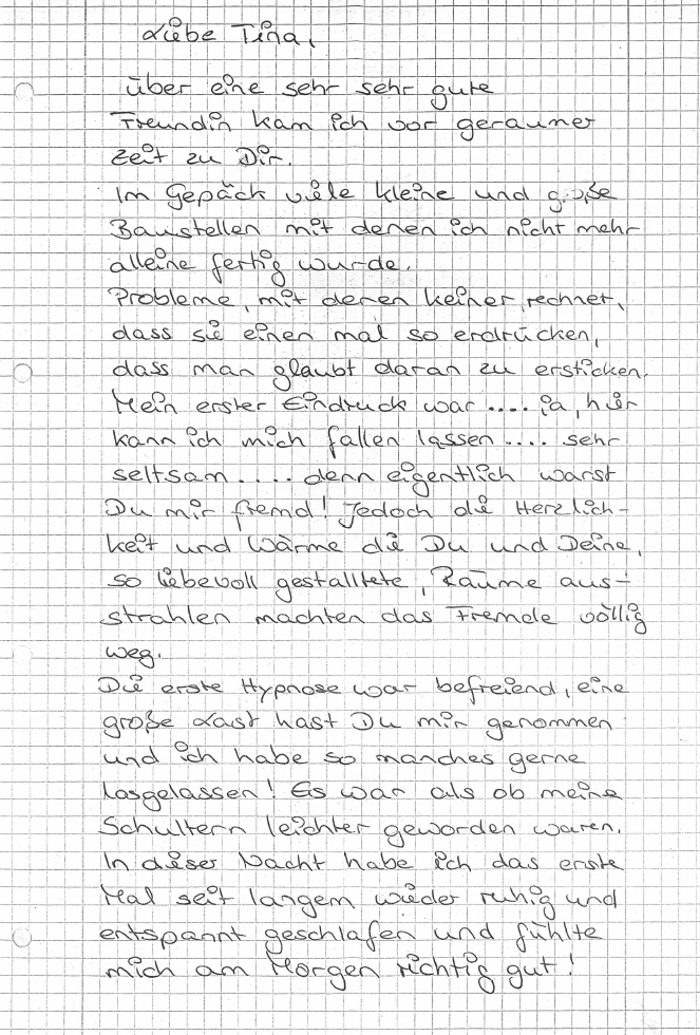 Liebe Tina,
über eine sehr sehr gute
Freundin kam ich vor geraumer
Zeit zu Dir.
Im Gepäck viele kleine und große
Baustellen mit denen ich nicht mehr
alleine fertig wurde.
Probleme, mit denen keiner rechnet,
dass sie einen mal so erdrücken,
dass man glaubt daran zu ersticken.
Mein erster Eindruck war .... ja, hier
kann ich mich fallen lassen .... sehr
seltsam .... denn eigentlich warst
Du mir fremd! Jedoch die Herzlich-
keit und Wärme die Du und Deine,
so liebevoll gestalltete, Räume aus-
strahlen machten das Fremde völlig
weg.
Die erste Hypnose war befreiend, eine
große Last hast Du mir genommen
und ich habe so manches gerne
losgelassen! Es war als ob meine
Schultern leichter geworden waren.
In dieser Nacht habe ich das erste
Mal seit langem wieder ruhig und
entspannt geschlafen und fühlte
mich am Morgen richtig gut!